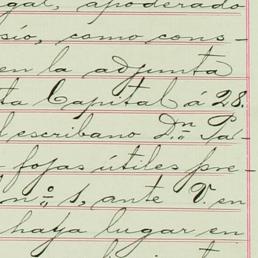 gal, apoderado
sío, como cons-
en la adjunta
ta Capital á 28.
l escribano Dn. Pa-
fojas útiles pre-
nº 1, ante V. en
hatja lugar en